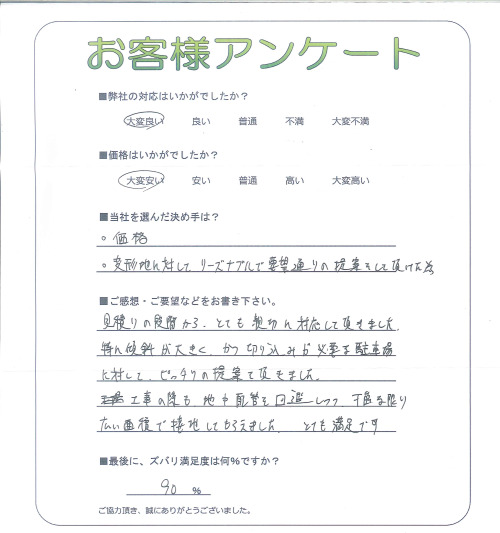 お客様アンケート
■弊社の対応はいかがでしたか？
大変良い 良い 普通 不満 大変不満
■価格はいかがでしたか？
大変安い 安い 普通 高い 大変高い
■当社を選んだ決め手は？
○ 価格
○ 変形地に対して、リーズナブルで要望通りの提案をして頂けた為
■ご感想・ご要望などをお書き下さい。
見積りの段階から、とても親切に対応して頂きました。
特に傾斜が大きく、かつ切り込みが必要な駐車場
に対して、ピッタリの提案を頂きました。
工事の際も地中配管を回避しつつ、可能な限り
広い面積で接地してもらえました。 とても満足です
■最後に、ズバリ満足度は何%ですか？
90 %
ご協力頂き、誠にありがとうございました。